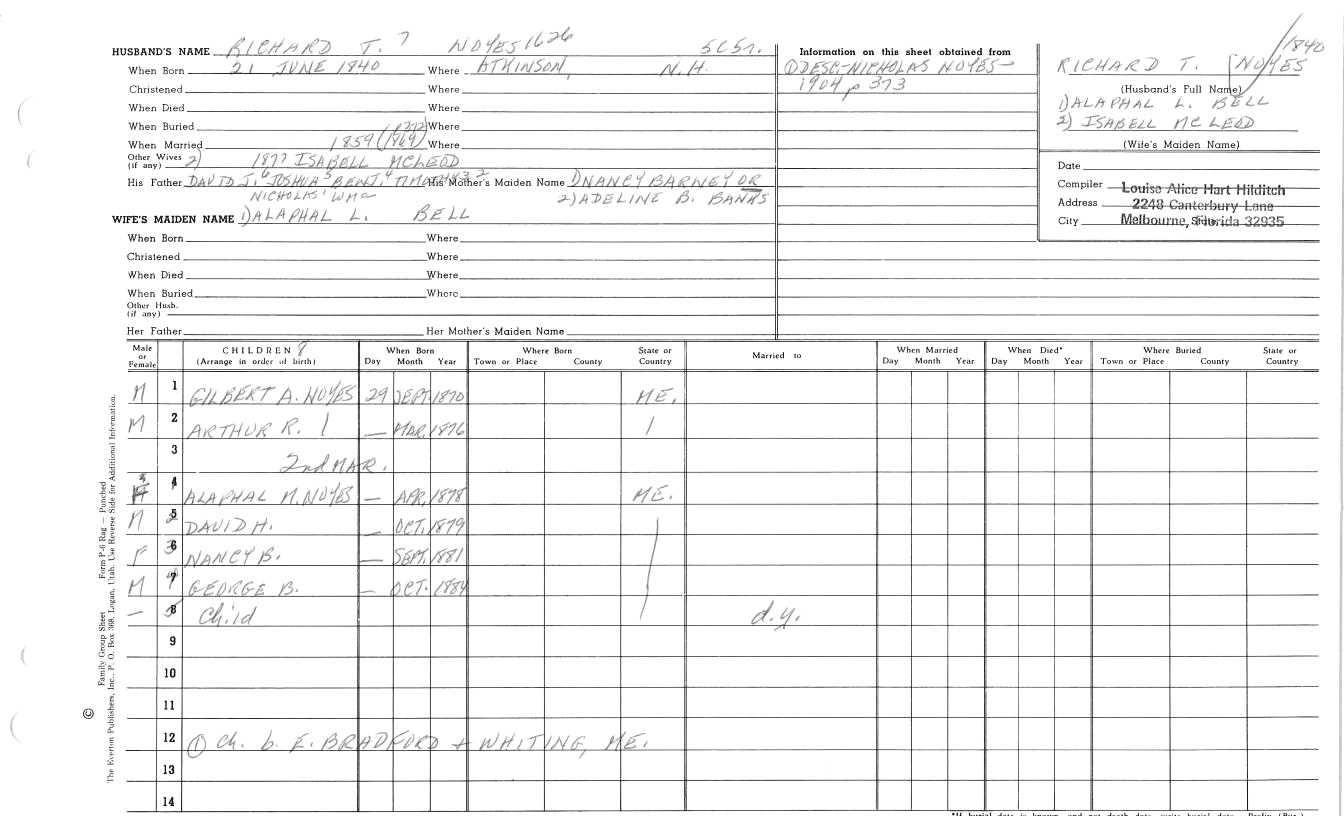 HUSBAND'S NAME RICHARD T. 7 NOYES 1626 5C5r.
When Born 21 JUNE 1840 Where ATKINSON, N.H.
Christened Where
When Died Where
When Buried Where
When Married 1859 (1869) Where
Other Wives (if any) 2) 1877 ISABELL MCLEOD
His Father DAVID J. 6 JOSHUA 5 BENJ. 4 His Mother's Maiden Name 1) NANCY BARNEY OR
NICHOLAS' WM 2) ADELINE B. BANKS
WIFE'S MAIDEN NAME 1) ALAPHAL L. BELL
When Born Where
Christened Where
When Died Where
When Buried Where
Other Husb. (if any)
Her Father Her Mother's Maiden Name
Information on this sheet obtained from
① DESC.-NICHOLAS NOYES-
1904 p 373
1840
RICHARD T. NOYES
(Husband's Full Name)
1) ALAPHAL L. BELL
2) ISABELL MCLEOD
(Wife's Maiden Name)
Date
Compiler Louise Alice Hart Hilditch
Address 2248 Canterbury Lane
City Melbourne, Florida 32935
Male or Female CHILDREN 8 (Arrange in order of birth) When Born Day Month Year Where Born Town or Place County State or Country Married to When Married Day Month Year When Died* Day Month Year Where Buried Town or Place County State or Country
M 1 GILBERT A. NOYES 29 SEPT. 1870 ME.
M 2 ARTHUR R. — MAR. 1876
3 2nd MAR.
4 ALAPHAL M. NOYES — APR. 1878 ME.
M 5 DAVID H. — OCT. 1879
F 6 NANCY B. — SEPT. 1881
M 7 GEORGE B. — OCT. 1884
— 8 Child d.y.
9
10
11
12 ① Ch. b. E. BRADFORD + WHITING, ME.
13
14
© Family Group Sheet Form P-6 Rag — Punched
The Everton Publishers, Inc., P. O. Box 368, Logan, Utah. Use Reverse Side for Additional Information.